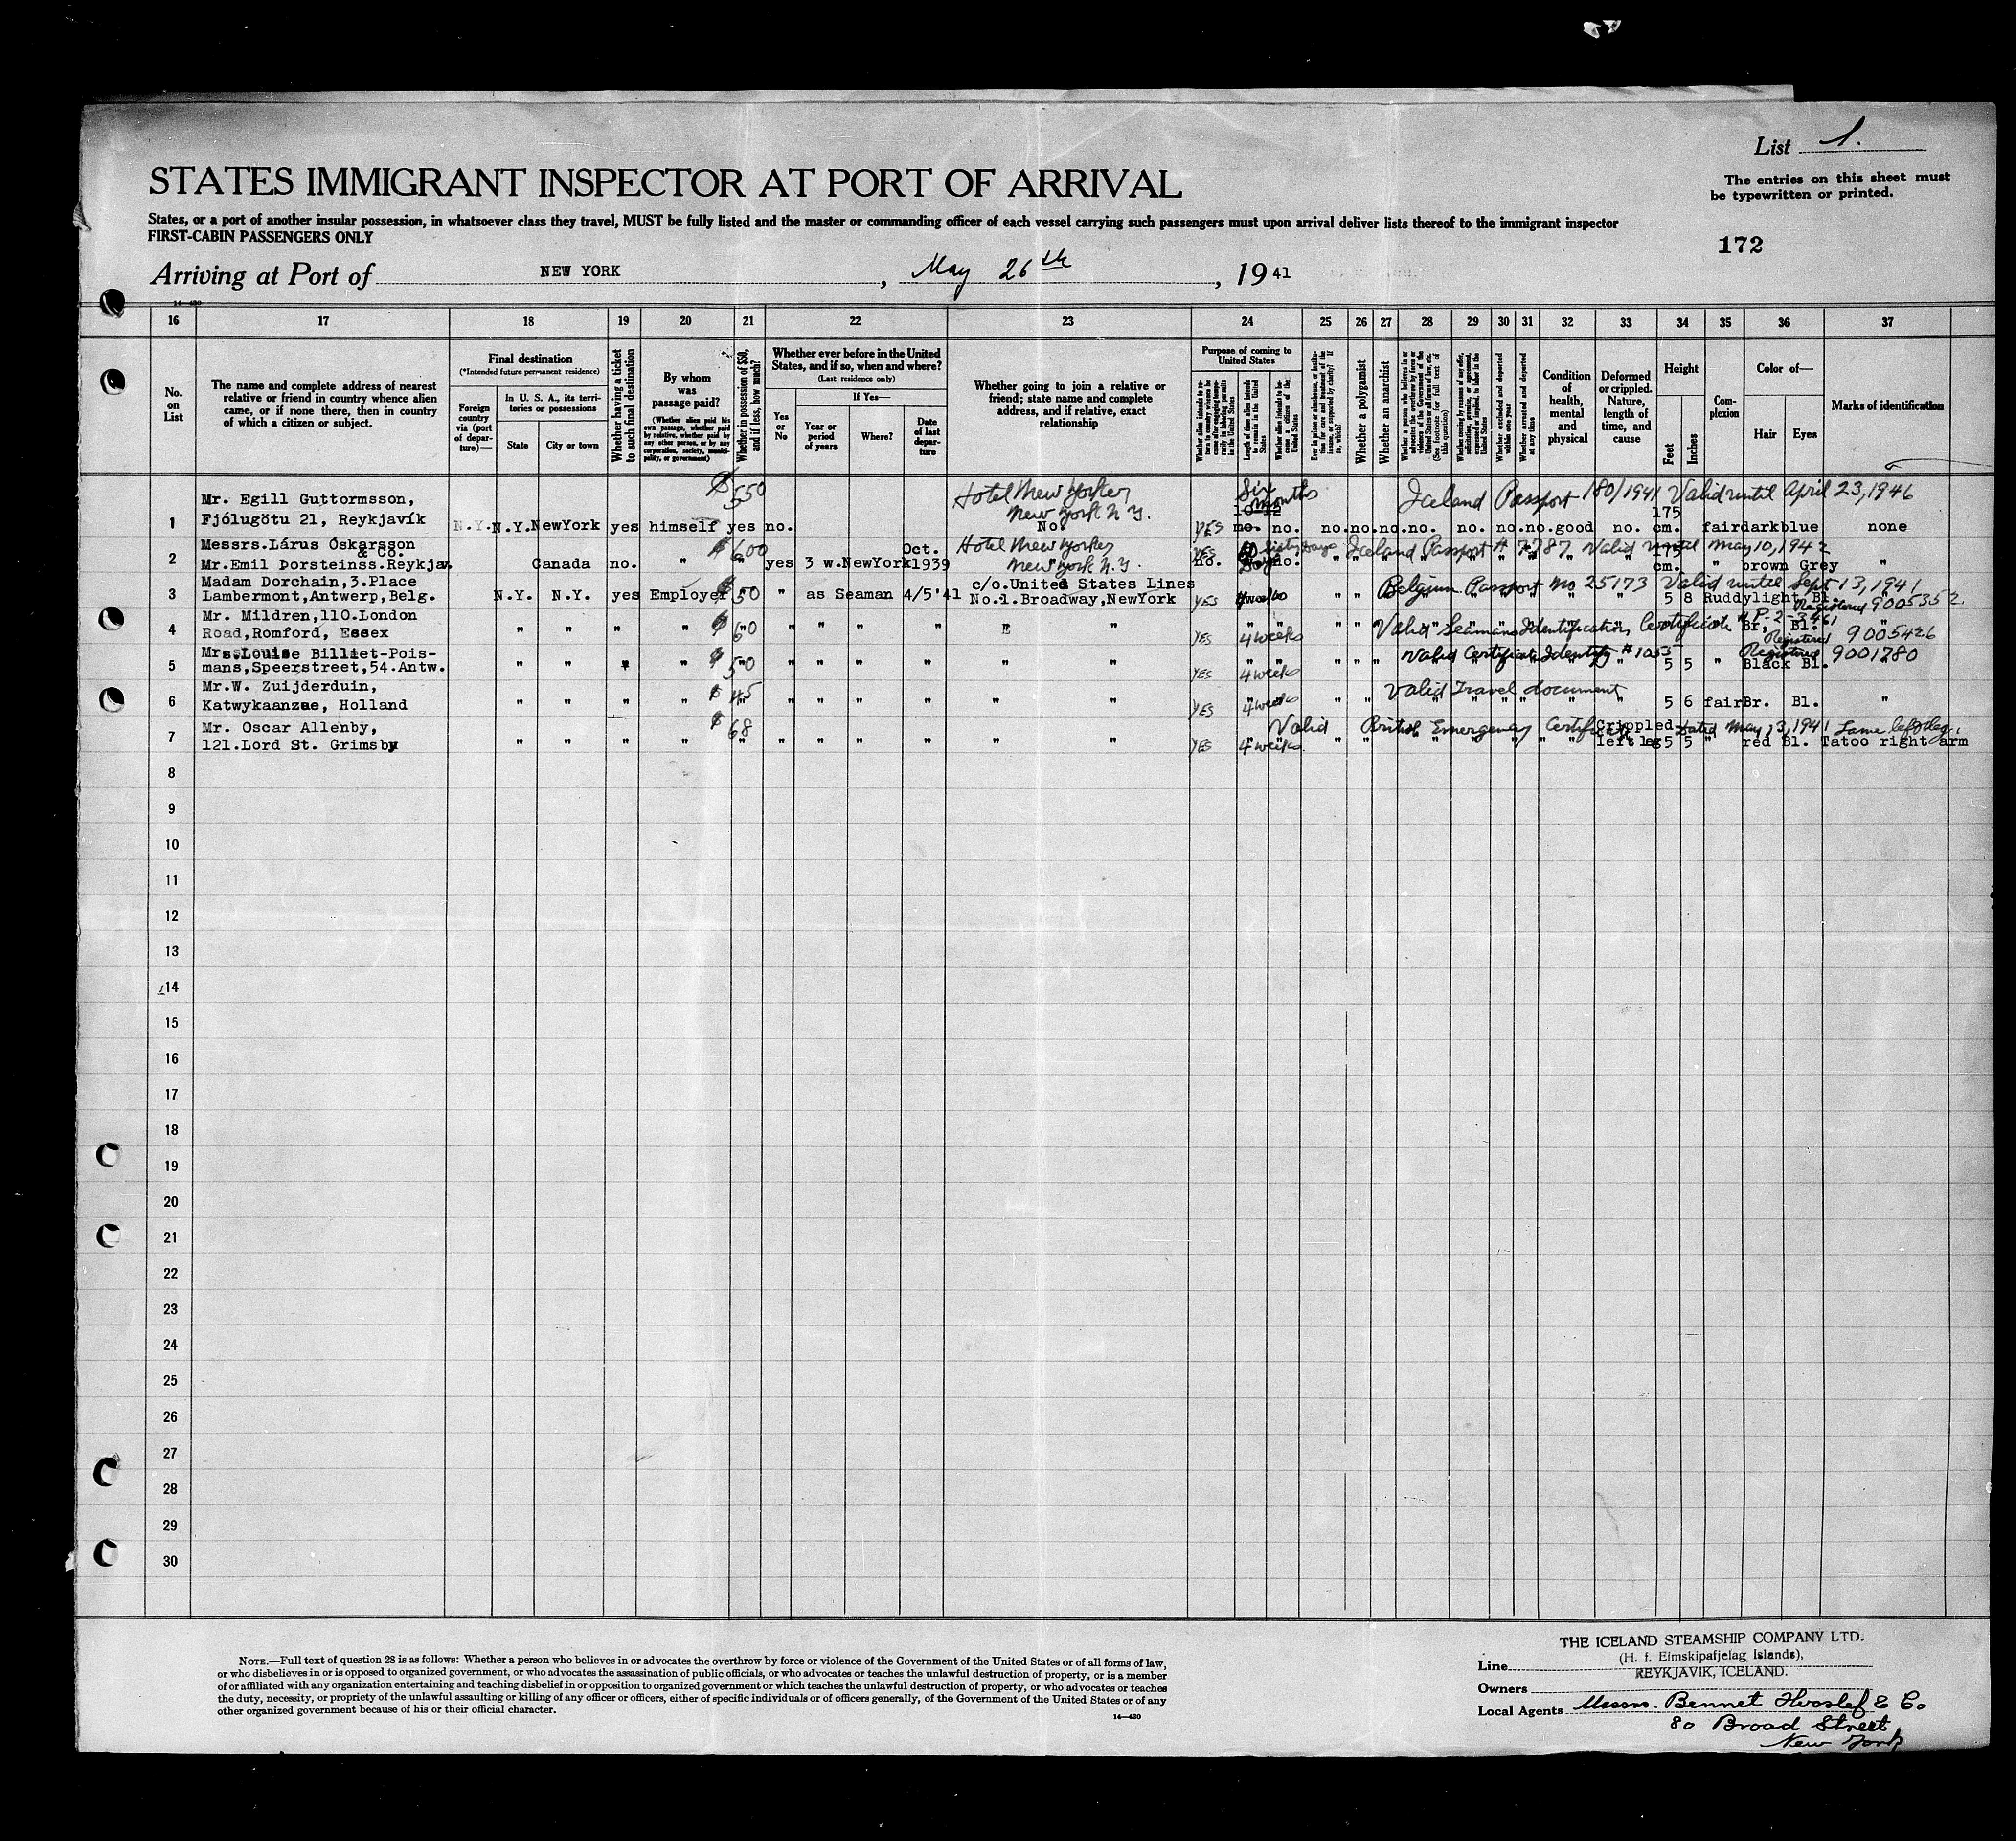 List 1.
STATES IMMIGRANT INSPECTOR AT PORT OF ARRIVAL
The entries on this sheet must
be typewritten or printed.
States, or a port of another insular possession, in whatsoever class they travel, MUST be fully listed and the master or commanding officer of each vessel carrying such passengers must upon arrival deliver lists thereof to the immigrant inspector
FIRST-CABIN PASSENGERS ONLY
172
Arriving at Port of NEW YORK, May 26th, 1941
14—430
16 17 18 19 20 21 22 23 24 25 26 27 28 29 30 31 32 33 34 35 36 37
No.
on
List
The name and complete address of nearest
relative or friend in country whence alien
came, or if none there, then in country
of which a citizen or subject.
Final destination
(*Intended future permanent residence)
Foreign
country
via (port
of depar-
ture)—
In U. S. A., its terri-
tories or possessions
State
City or town
Whether having a ticket
to such final destination
By whom
was
passage paid?
(Whether alien paid his
own passage, whether paid
by relative, whether paid by
any other person, or by any
corporation, society, munici-
pality, or government)
Whether in possession of $50,
and if less, how much?
Whether ever before in the United
States, and if so, when and where?
(Last residence only)
Yes
or
No
If Yes—
Year or
period
of years
Where?
Date
of last
depar-
ture
Whether going to join a relative or
friend; state name and complete
address, and if relative, exact
relationship
Purpose of coming to
United States
Length of time alien intends
to remain in the United
States
Whether alien intends to be-
come a citizen of the
United States
Whether a polygamist
Whether an anarchist
Whether arrested and deported
at any time
Condition
of
health,
mental
and
physical
Deformed
or crippled.
Nature,
length of
time, and
cause
Height
Feet
Inches
Com-
plexion
Color of—
Hair
Eyes
Marks of identification
$550 Hotel New Yorker Six months Iceland Passport 180/1941 Valid until April 23, 1946
Mr. Egill Guttormsson,
New York N.Y. 175
1 Fjólugötu 21, Reykjavík N.Y. N.Y. NewYork yes himself yes no. No. YES no. no. no. no. no. no. no. no. no. good no. cm. fair dark blue none
Messrs. Lárus Óskarsson
& Co. $600 Oct. Hotel New Yorker YES Sixty days Iceland Passport # 7787 Valid until May 10, 1942
2 Mr. Emil Þorsteinss. Reykjav. Canada no. " " yes 3 w. NewYork 1939 New York N.Y. no. no. 175 cm. " brown Grey "
Madam Dorchain, 3. Place c/o. United States Lines Belgium Passport No 25173 Valid until Sept 13, 1941
3 Lambermont, Antwerp, Belg. N.Y. N.Y. yes Employer $50 " as Seaman 4/5'41 No. 1. Broadway, NewYork YES 4 weeks 5 8 Ruddy light Bl.
Registered 9005352
Mr. Mildren, 110. London $60 Valid Seamans Identification Certificate # P-2-3461
4 Road, Romford, Essex " " " " " " " " " " YES 4 weeks Br. Bl.
Registered 9005426
Mrs. Louise Billiet-Pois- $50 Valid Certificate Identity # 1055 Registered 9001780
5 mans, Speerstreet, 54. Antw. " " " " " " " " " " YES 4 weeks 5 5 " Black Bl.
Mr. W. Zuijderduin, $45 Valid Travel document
6 Katwykaanzee, Holland " " " " " " " " " " YES 4 weeks 5 6 fair Br. Bl. "
Mr. Oscar Allenby, $68 Valid British Emergency Certificate Crippled dated May, 3, 1941 Lame left leg.
7 121. Lord St. Grimsby " " " " " " " " " " YES 4 weeks left leg 5 5 " red Bl. Tatoo right arm
8
9
10
11
12
13
14
15
16
17
18
19
20
21
22
23
24
25
26
27
28
29
30
NOTE.—Full text of question 28 is as follows: Whether a person who believes in or advocates the overthrow by force or violence of the Government of the United States or of all forms of law,
or who disbelieves in or is opposed to organized government, or who advocates the assassination of public officials, or who advocates or teaches the unlawful destruction of property, or is a member
of or affiliated with any organization entertaining and teaching disbelief in or opposition to organized government or which teaches the unlawful destruction of property, or who advocates or teaches
the duty, necessity, or propriety of the unlawful assaulting or killing of any officer or officers, either of specific individuals or of officers generally, of the Government of the United States or of any
other organized government because of his or their official character.
14—430
THE ICELAND STEAMSHIP COMPANY LTD.
Line (H. f. Eimskipafjelag Islands),
REYKJAVIK, ICELAND.
Owners
Local Agents Messrs. Bennet Hvoslef & Co
80 Broad Street
New York